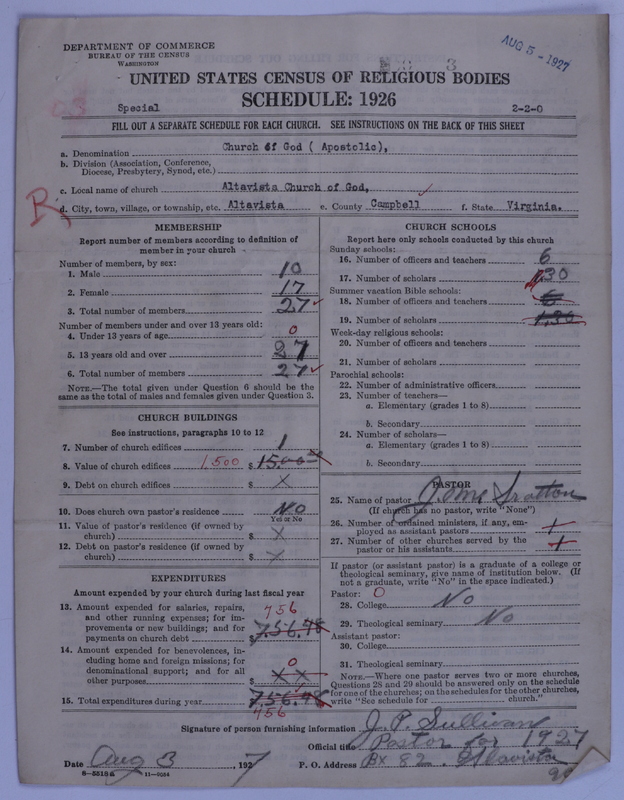 DEPARTMENT OF COMMERCE
BUREAU OF THE CENSUS
WASHINGTON
AUG 5 - 1927
3
UNITED STATES CENSUS OF RELIGIOUS BODIES
Special
SCHEDULE: 1926
2-2-0
FILL OUT A SEPARATE SCHEDULE FOR EACH CHURCH. SEE INSTRUCTIONS ON THE BACK OF THIS SHEET
a. Denomination Church of God ( Apostolic),
b. Division (Association, Conference,
Diocese, Presbytery, Synod, etc.)
c. Local name of church Altavista Church of God,
R
d. City, town, village, or township, etc. Altavista e. County Campbell f. State Virginia.
MEMBERSHIP
Report number of members according to definition of
member in your church
Number of members, by sex:
1. Male 10
2. Female 17
3. Total number of members 27
Number of members under and over 13 years old:
4. Under 13 years of age 0
5. 13 years old and over 27
6. Total number of members 27
NOTE.—The total given under Question 6 should be the
same as the total of males and females given under Question 3.
CHURCH BUILDINGS
See instructions, paragraphs 10 to 12
7. Number of church edifices 1
8. Value of church edifices 1,500 $ 15.00
9. Debt on church edifices $ X
10. Does church own pastor's residence No
Yes or No
11. Value of pastor's residence (if owned by
church) $ X
12. Debt on pastor's residence (if owned by
church) $ X
EXPENDITURES
Amount expended by your church during last fiscal year
13. Amount expended for salaries, repairs,
and other running expenses; for im-
provements or new buildings; and for
payments on church debt 756 $ 7.56.98
14. Amount expended for benevolences, in-
cluding home and foreign missions; for
denominational support; and for all
other purposes 0 $ X X
15. Total expenditures during year $ 7.56.98
756
CHURCH SCHOOLS
Report here only schools conducted by this church
Sunday schools:
16. Number of officers and teachers 6
17. Number of scholars 30
Summer vacation Bible schools:
18. Number of officers and teachers 6
19. Number of scholars 1,30
Week-day religious schools:
20. Number of officers and teachers
21. Number of scholars
Parochial schools:
22. Number of administrative officers
23. Number of teachers—
a. Elementary (grades 1 to 8)
b. Secondary
24. Number of scholars—
a. Elementary (grades 1 to 8)
b. Secondary
PASTOR
25. Name of pastor
(If church has no pastor, write "None")
26. Number of ordained ministers, if any, em-
ployed as assistant pastors 1
27. Number of other churches served by the
pastor or his assistants 1
If pastor (or assistant pastor) is a graduate of a college or
theological seminary, give name of institution below. (If
not a graduate, write "No" in the space indicated.)
Pastor: 0
28. College No
29. Theological seminary No
Assistant pastor:
30. College
31. Theological seminary
NOTE.—Where one pastor serves two or more churches,
Questions 28 and 29 should be answered only on the schedule
for one of the churches; on the schedules for the other churches,
write "See schedule for church."
Signature of person furnishing information J. P. Sullivan
Official title Pastor for 1927
Date Aug 3, 1927 P. O. Address Bx 82. Altavista
8—5518a 11—9054